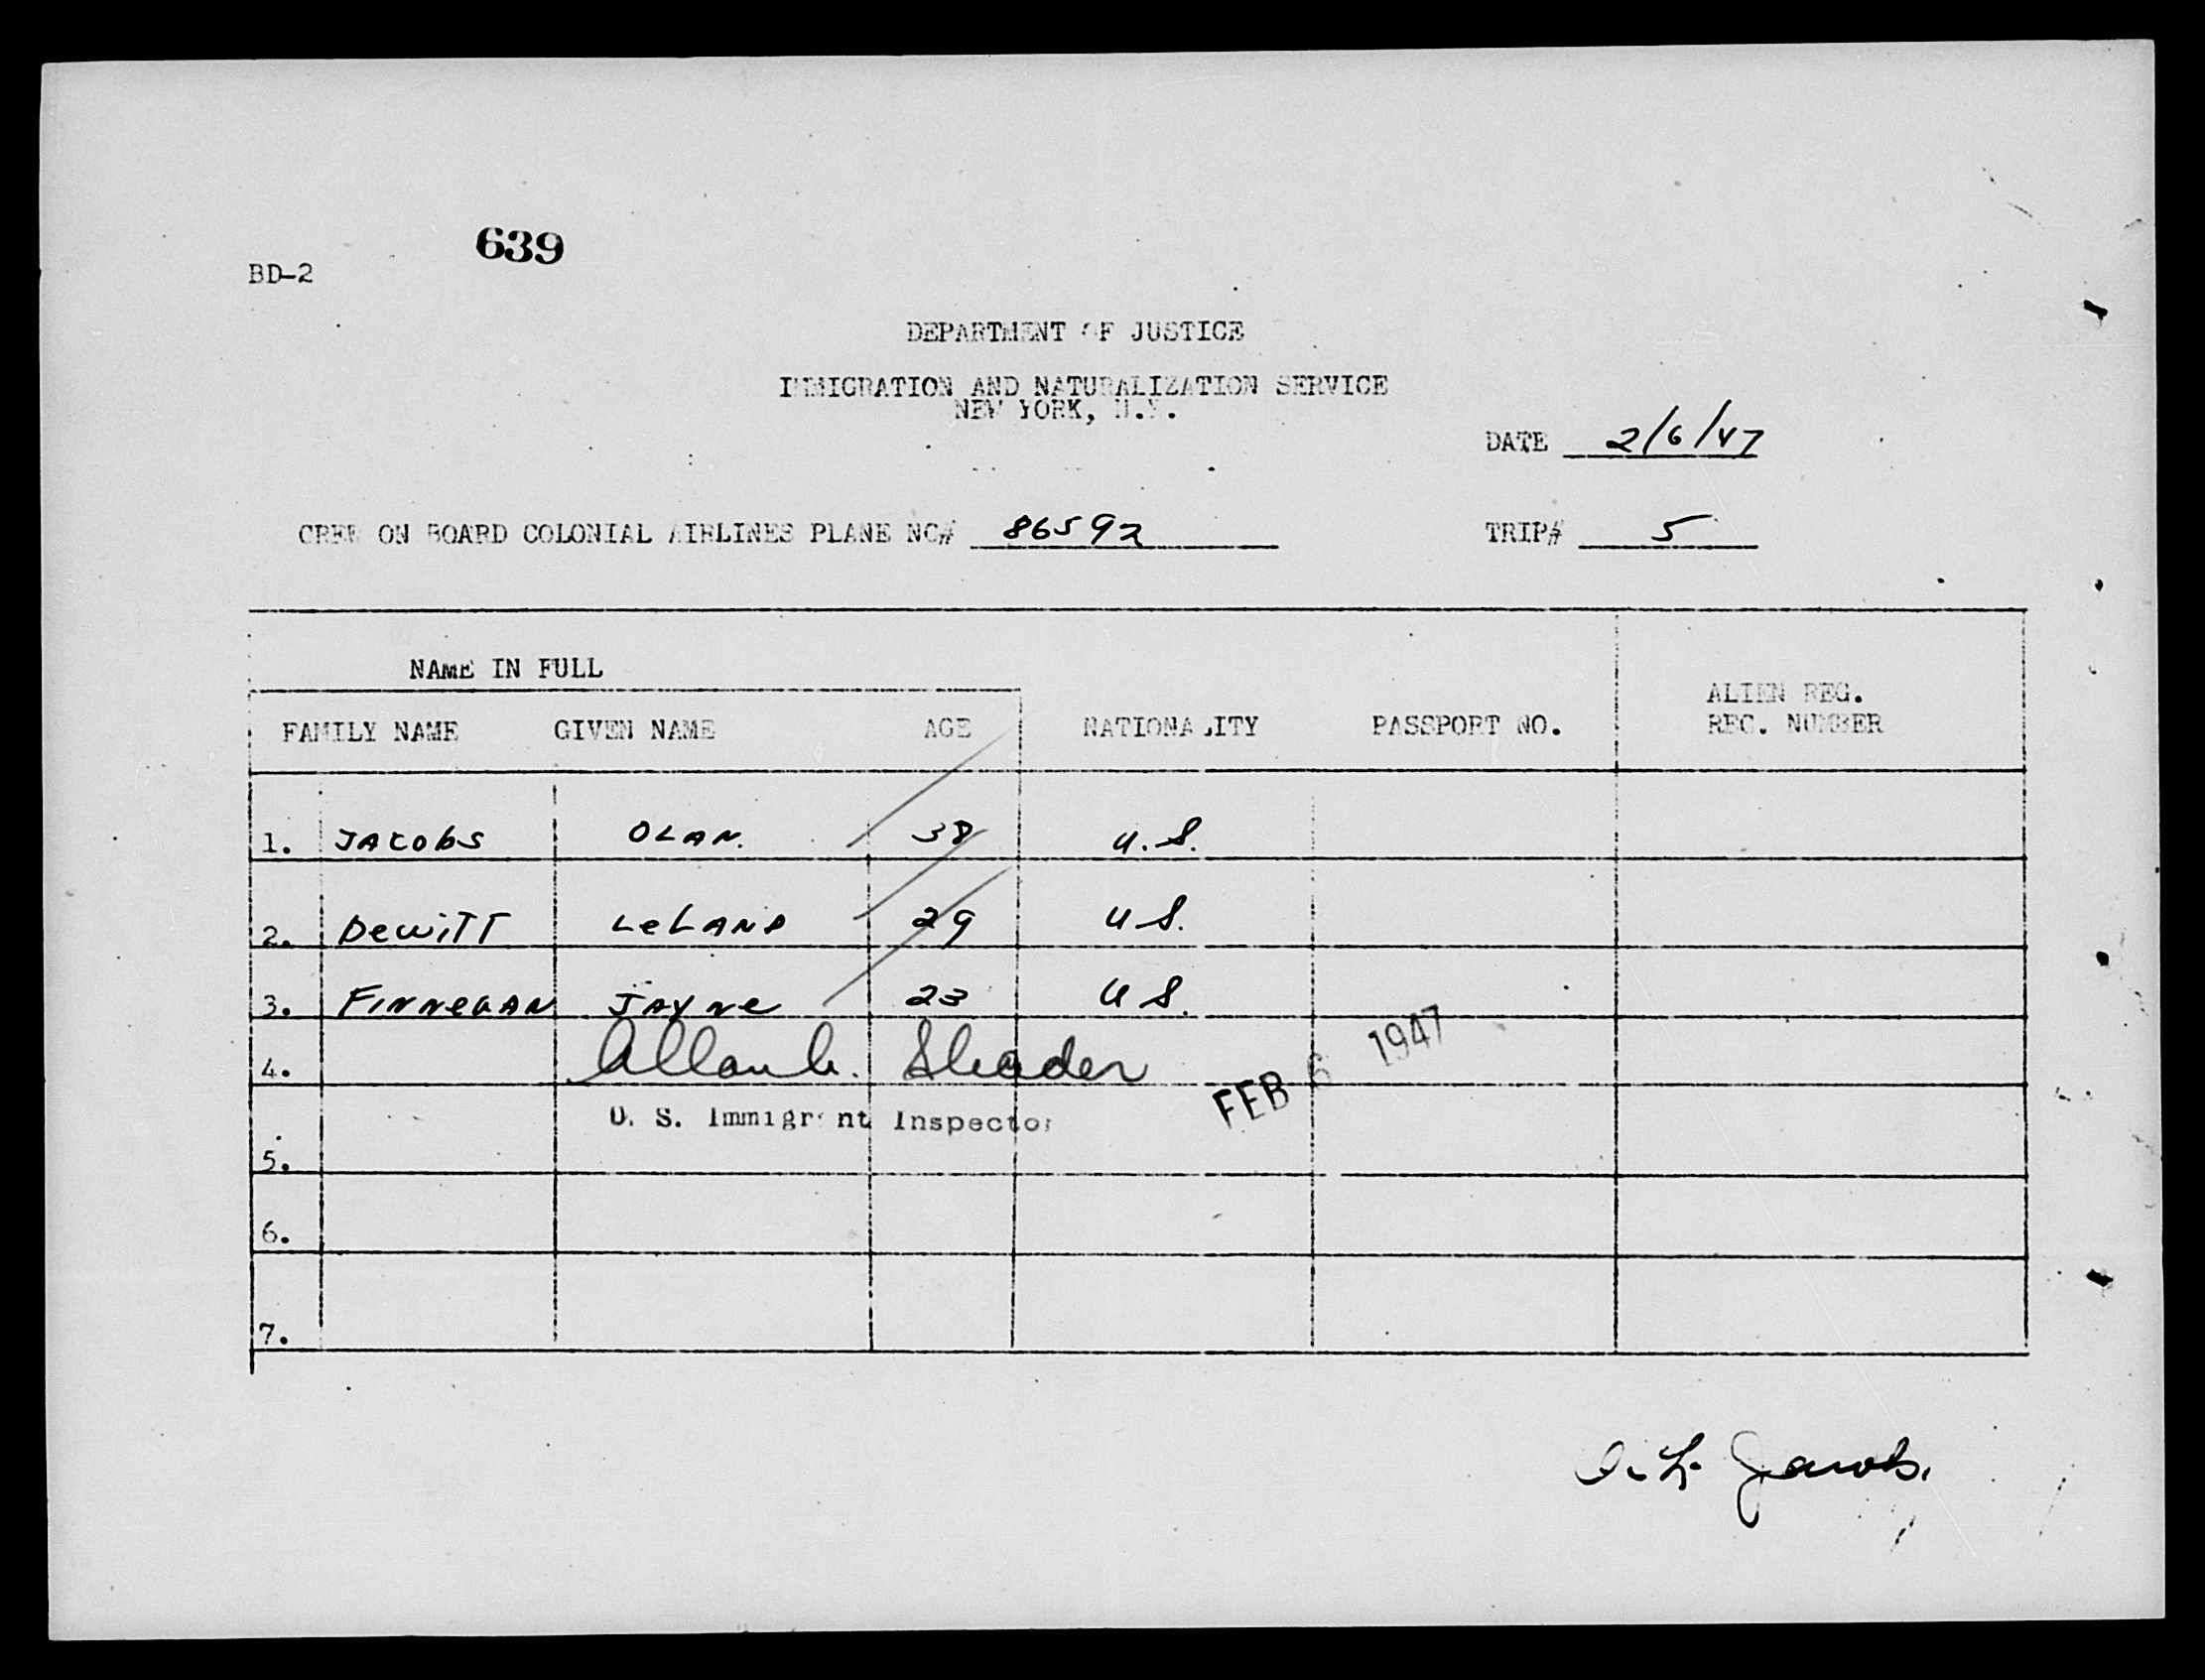 639
BD-2
DEPARTMENT OF JUSTICE
IMMIGRATION AND NATURALIZATION SERVICE
NEW YORK, N.Y.
DATE 2/6/47
CREW ON BOARD COLONIAL AIRLINES PLANE NC# 86592 TRIP# 5
NAME IN FULL
ALIEN REG.
FAMILY NAME GIVEN NAME AGE NATIONALITY PASSPORT NO. REC. NUMBER
1. JACObS OLAN. 38 U.S.
2. DewiTT LeLAND 29 U S.
3. FINNeGAN JAYNe 23 U S.
4. Shader
FEB 6 1947
U. S. Immigrant Inspector
5.
6.
7.
O. L. Jacobs.